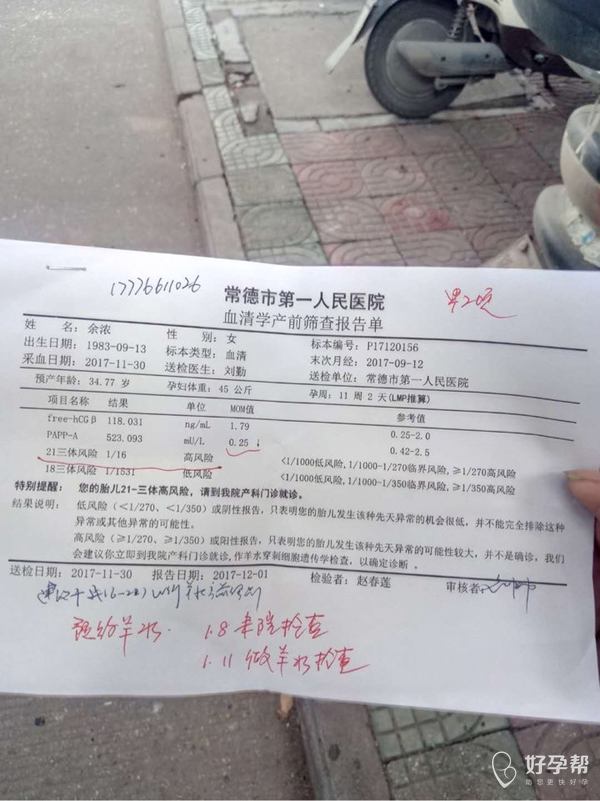 17776611026
常德市第一人民医院
血清学产前筛查报告单
姓 名： 余浓 性 别： 女 标本编号：P17120156
出生日期：1983-09-13 标本类型：血清 末次月经：2017-09-12
采血日期：2017-11-30 送检医生：刘勤 送检单位：常德市第一人民医院
预产年龄：34.77 岁 孕妇体重：45 公斤 孕周：11 周 2 天(LMP推算)
项目名称 结果 单位 MOM值 参考值
free-hCGβ 118.031 ng/mL 1.79 0.25-2.0
PAPP-A 523.093 mU/L 0.25 ↓ 0.42-2.5
21三体风险 1/16 高风险 <1/1000低风险,1/1000~1/270临界风险,≥1/270高风险
18三体风险 1/1531 低风险 <1/1000低风险,1/1000~1/350临界风险,≥1/350高风险
特别提醒： 您的胎儿21-三体高风险，请到我院产科门诊就诊。
结果说明： 低风险（＜1/270、＜1/350）或阴性报告，只表明您的胎儿发生该种先天异常的机会很低，并不能完全排除这种
异常或其他异常的可能性。
高风险（≥1/270、≥1/350）或阳性报告，只表明您的胎儿发生该种先天异常的可能性较大，并不是确诊，我们
会建议你立即到我院产科门诊就诊,作羊水穿刺细胞遗传学检查，以确定诊断 。
送检日期：2017-11-30 报告日期：2017-12-01 检验者：赵春莲 审核者：
预约羊水. 1.8来院检查
1.11 做羊水检查
好孕帮
助您更快好孕